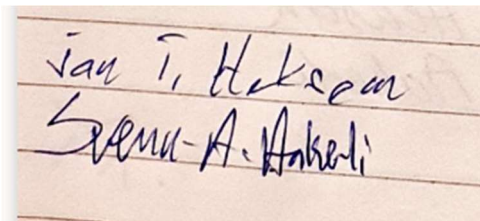 Jan T. Haksem
Svenn-A. Hakerli